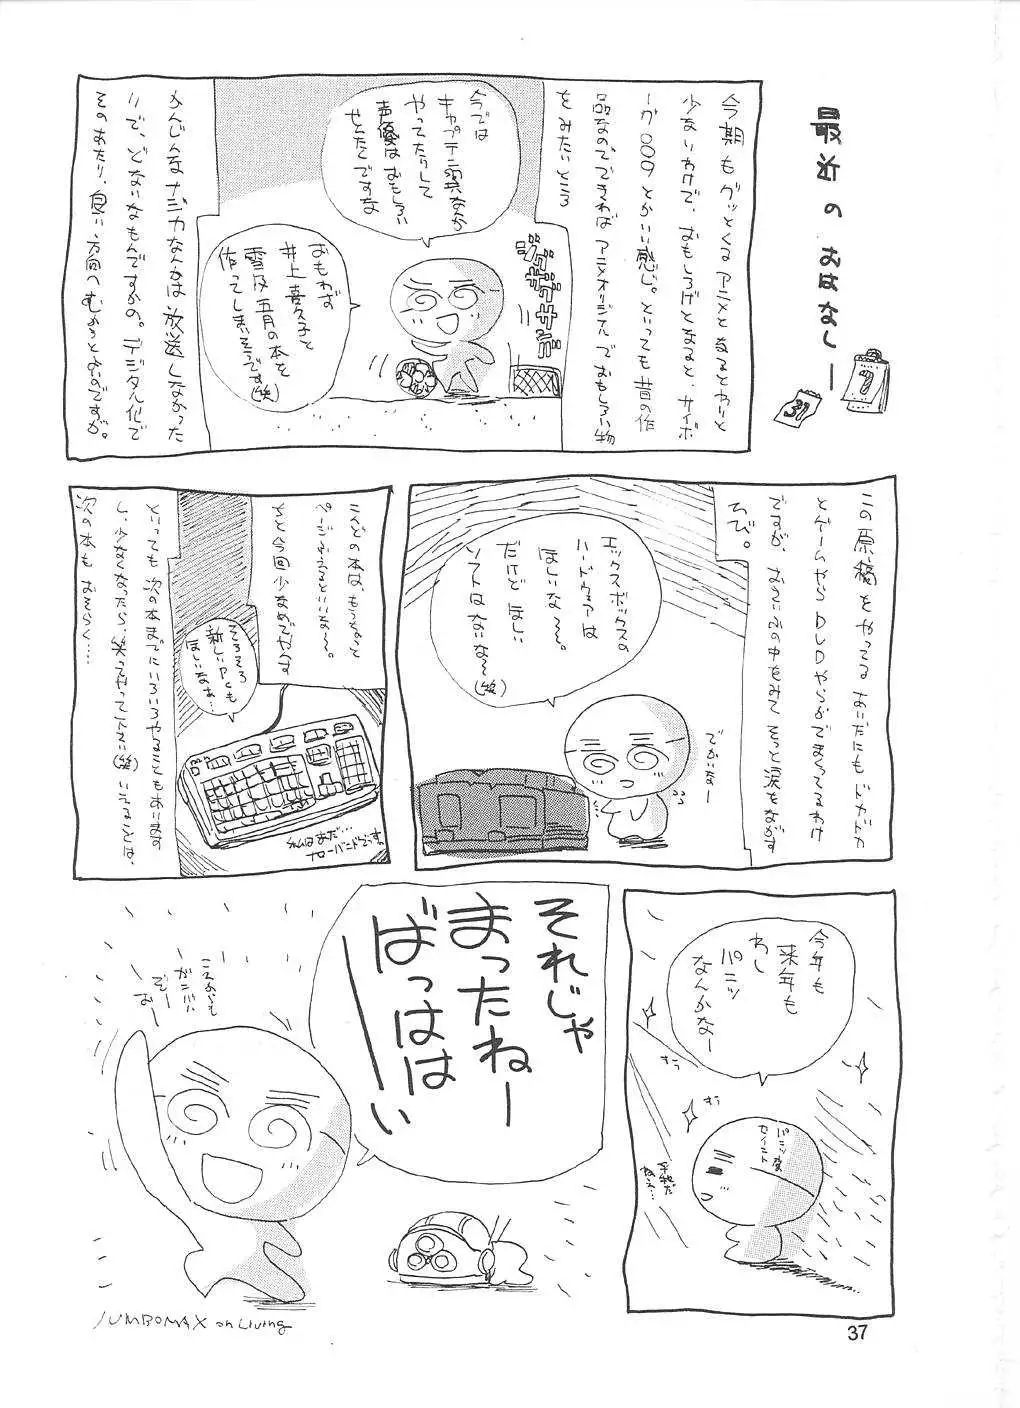 最近のおはなしー
7
31
今期もグッとくるアニメとなるとわりと
少ないわけで、おもしろげとなると、サイボ
ーグ009とかいい感じ。といっても昔の作
品なので、できればアニメオリジナルでおもしろい物
をみたいところ
今では
キャプテン翼なんか
やってたりして
声優はおもしろい
せんたくですな
おもわず
井上喜久子と
雪及五月の本を
作ってしまいそうです(笑)
かんじんなナジカなんかは放送しなかった
りで、どないなもんですかの。デジタル化で
そのあたり、良い方向へむかうとよいのですが。
この原稿をやってるあいだにもドカドカ
とゲームやらDVDやらがでまくってるわけ
ですが、おさいふの中をみてそっと涙をながす
ちび。
エックスボックスの
ハードウェアは
ほしいな〜。
だけどほしい
ソフトはないな〜(笑)
でかいなー
こんどの本は、もうちょって
ページふえるといいな〜。
ちと今回少なめですんで
そろそろ
新しいPCも
ほしいなぁ…
私はまだ…
ナローバンドでっす。
といっても次の本までにいろいろやることもあります
し、少なくなったら、笑ってやって下さい(笑)いえることは、
次の本もおそらく……
今年も
来年も
わし
パンツ
なんかなー
平和だ
ねぇ…
それじゃ
まったねー
ばっははーい
これからも
ガンバル
ぞー
おー
JUMBOMAX on Living
37